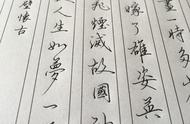 畫一時多少
嫁了雄姿英
飛煙滅故國神
人生如夢一
壁懷古